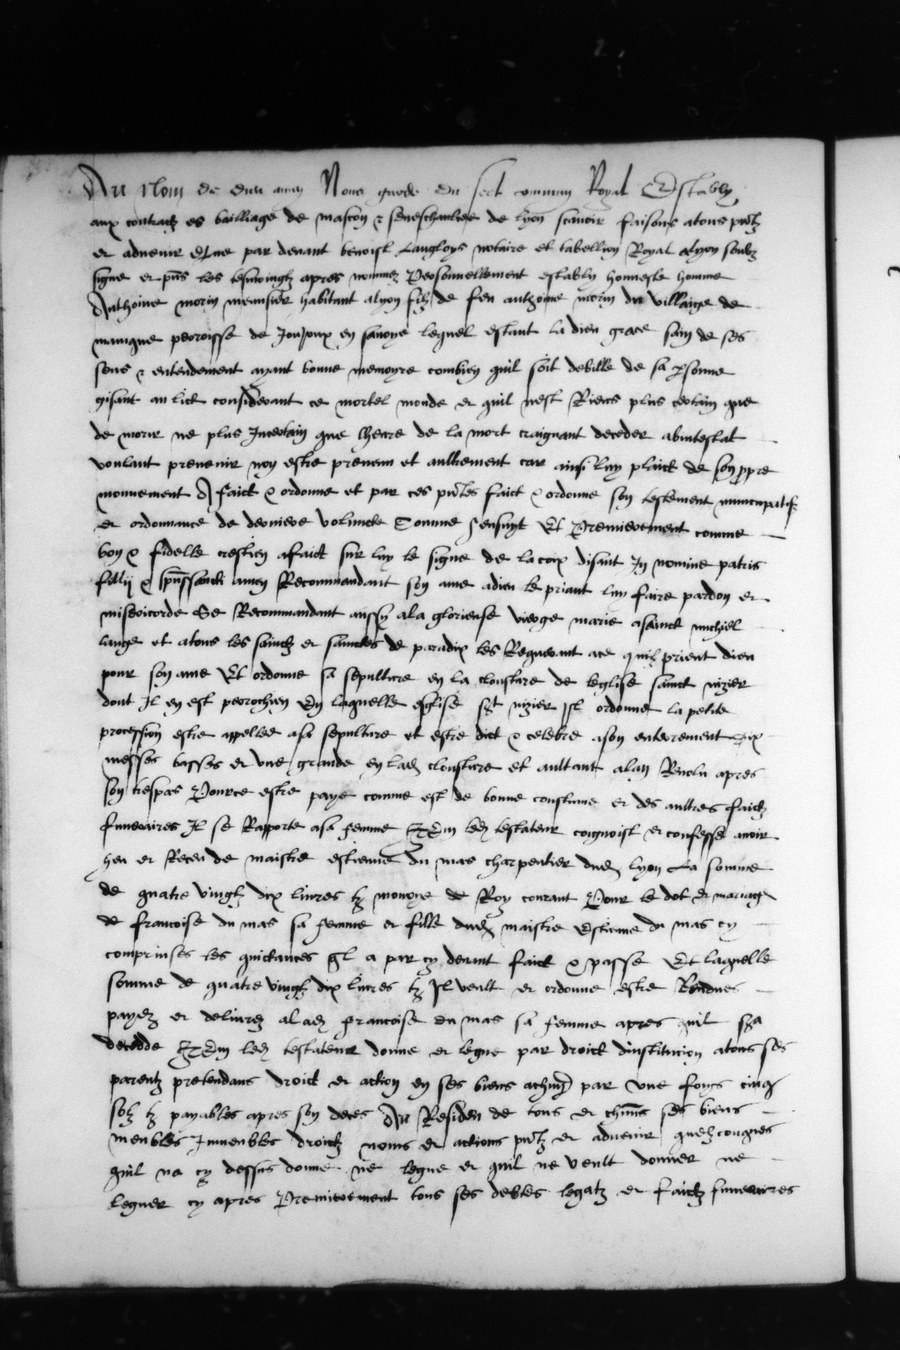 Au Nom de dieu amen Nous garde du seel commun Royal Estably
aux contractz es bailliage de mascon & seneschaulcee de lyon scavoir faisons a tous pntz
et advenir Que par devant benoist Langloys notaire et tabellion Royal a lyon soubz
signe et pns les tesmoingtz apres nommez Personnellement estably honneste homme
Anthoine morin menusier habitant a lyon filz de feu anthoine morin du villaige de
parroisse de en savoye lequel estant la dieu grace sain de ses
sens & entendement ayant bonne memoyre combien quil soit debille de sa psonne
gisant au lict considerant ce mortel monde et quil nest Riens plus certain que
de morir ne plus Incertain que lheure de la mort craignant deceder abintestat
voulant prevenir non estre prevenu et aultrement car ainsi luy plaict de son ppre
mouvement A faict & ordonne et par ces pntes faict & ordonne son testement nuncupatif
et ordonnance de derniere volunte Comme sensuyt Et Premierement comme
bon & fidelle crestien a faict sur luy le signe de la croix disant In nomine patris
fillij & spus sancti amen Recommandant son ame a dieu le priant luy faire pardon et
misericorde Se Recommandant aussy a la glorieuse vierge marie a sainct michiel
lange et a tous les sainctz et sainctes de paradix les Requerant a ce quilz prient dieu
pour son ame Et ordonne sa sepulture en la cloistre de leglise sainct nizier
dont Il en est parrochien En laquelle esglise sct nizier Il ordonne la petite
procession estre appellee a sa sepulture et estre dict & celebre a son enterrement six
messes basses et une grande en lad cloistre et aultant a lan Revolu apres
son trespas Pour ce estre paye comme est de bonne coustume et des aultres faictz
funeraires Il se Rapporte a sa femme Item led testateur congnoist et confesse avoir
heu et Receu de maistre estienne du mas charpentier dud lyon La somme
de quatre vingtz dix livres tz monoye de Roy courant Pour le dot et mariage
de francoise du mas sa femme et fille dud maistre Estienne du mas cy
comprinses les quictances ql a par cy devant faict & passe Et laquelle
somme de quatre vingtz dix livres tz Il veult et ordonne estre Rendues
payez et delivrez a lad francoise du mas sa femme apres quil sera
decedde Item led testateur donne et legue par droict dinstitucion a tous ses
parentz pretendans droict et action en ses biens a chung par une foys cinq
solz tz payables apres son deces Au Residen de tous et chuns ses biens
meubles Immeubles droictz noms et actions pntz et advenir quelzconques
quil na cy dessus donne ne legue et quil ne veult donner ne
leguer cy apres Premierement tous ses debtes legatz et faictz funeraires